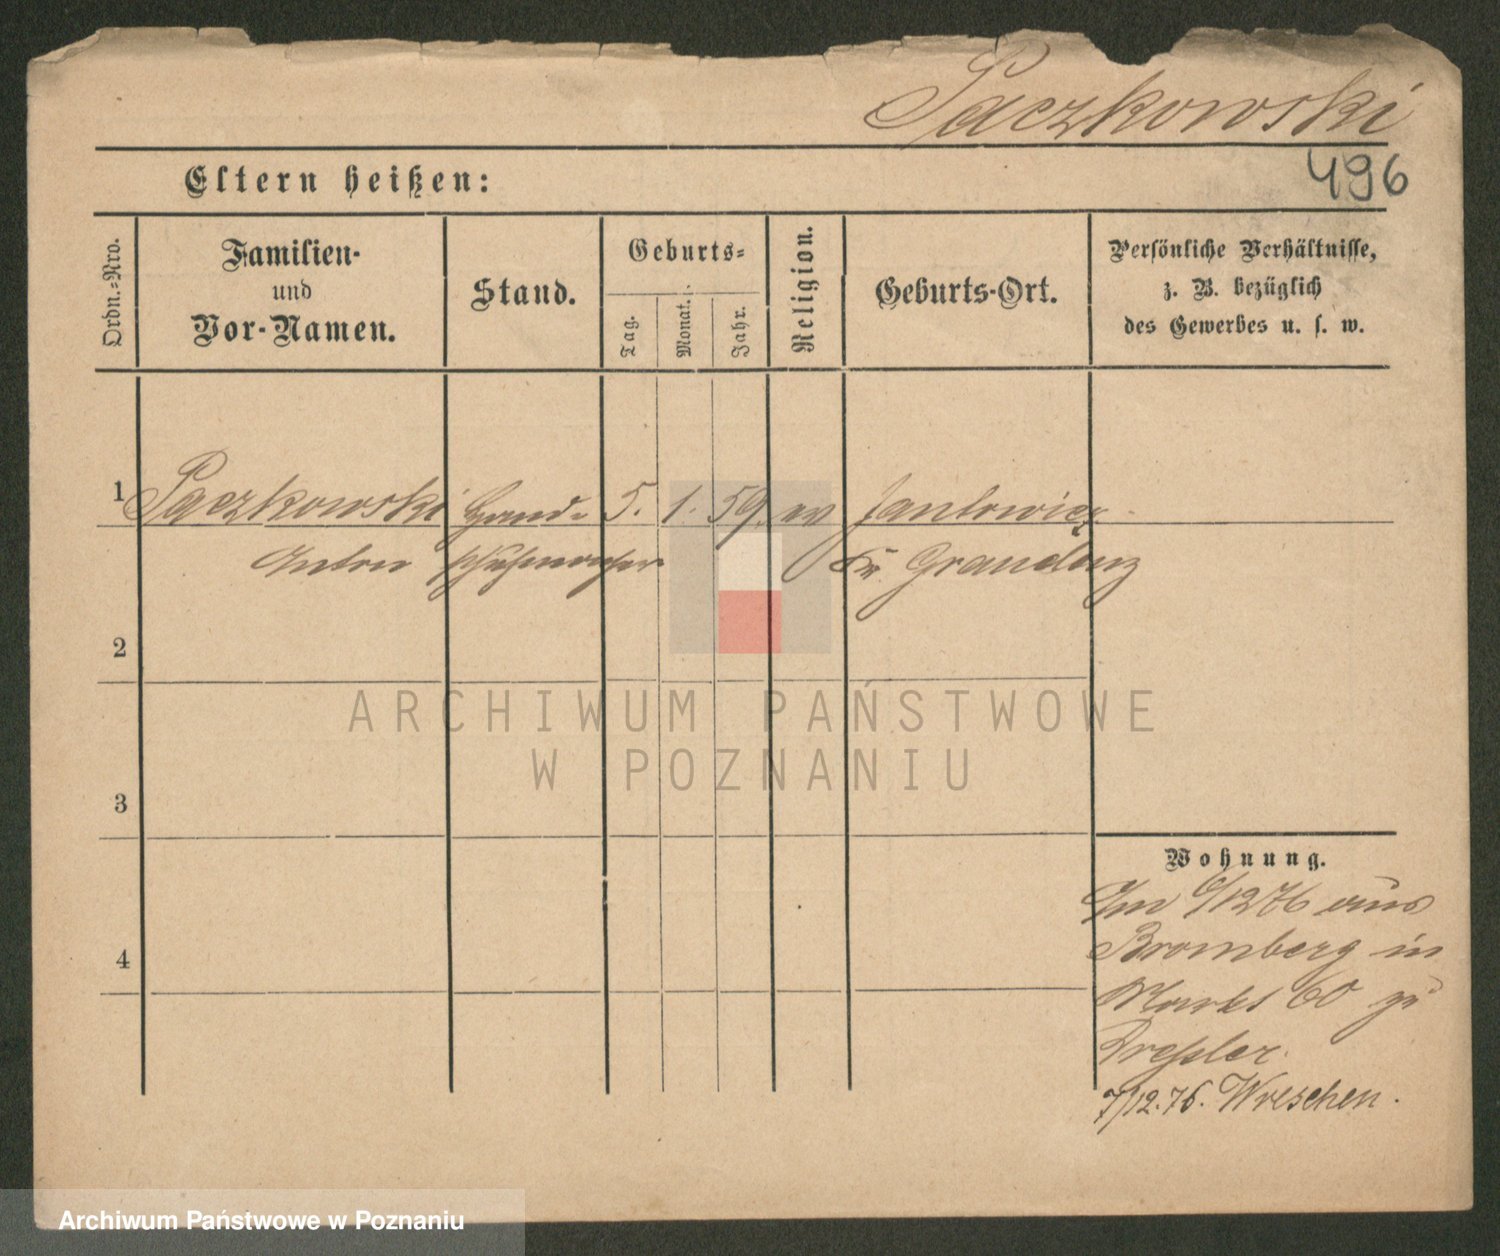 Paczkowski
496
Eltern heißen:
Ordn.-Nro.
Familien-
und
Vor-Namen.
Stand.
Geburts-
Tag.
Monat.
Jahr.
Religion.
Geburts-Ort.
Persönliche Verhältnisse,
z. B. bezüglich
des Gewerbes u. s. w.
1 Paczkowski Hand- 5. 1. 59. ev Jankowicz
Anton schuhmacher Kr Graudenz
2
3
4
Wohnung.
Im 6/12 76 aus
Bromberg in
Markt 60 zu
7/12.76. Wreschen.
ARCHIWUM PAŃSTWOWE
W POZNANIU
Archiwum Państwowe w Poznaniu